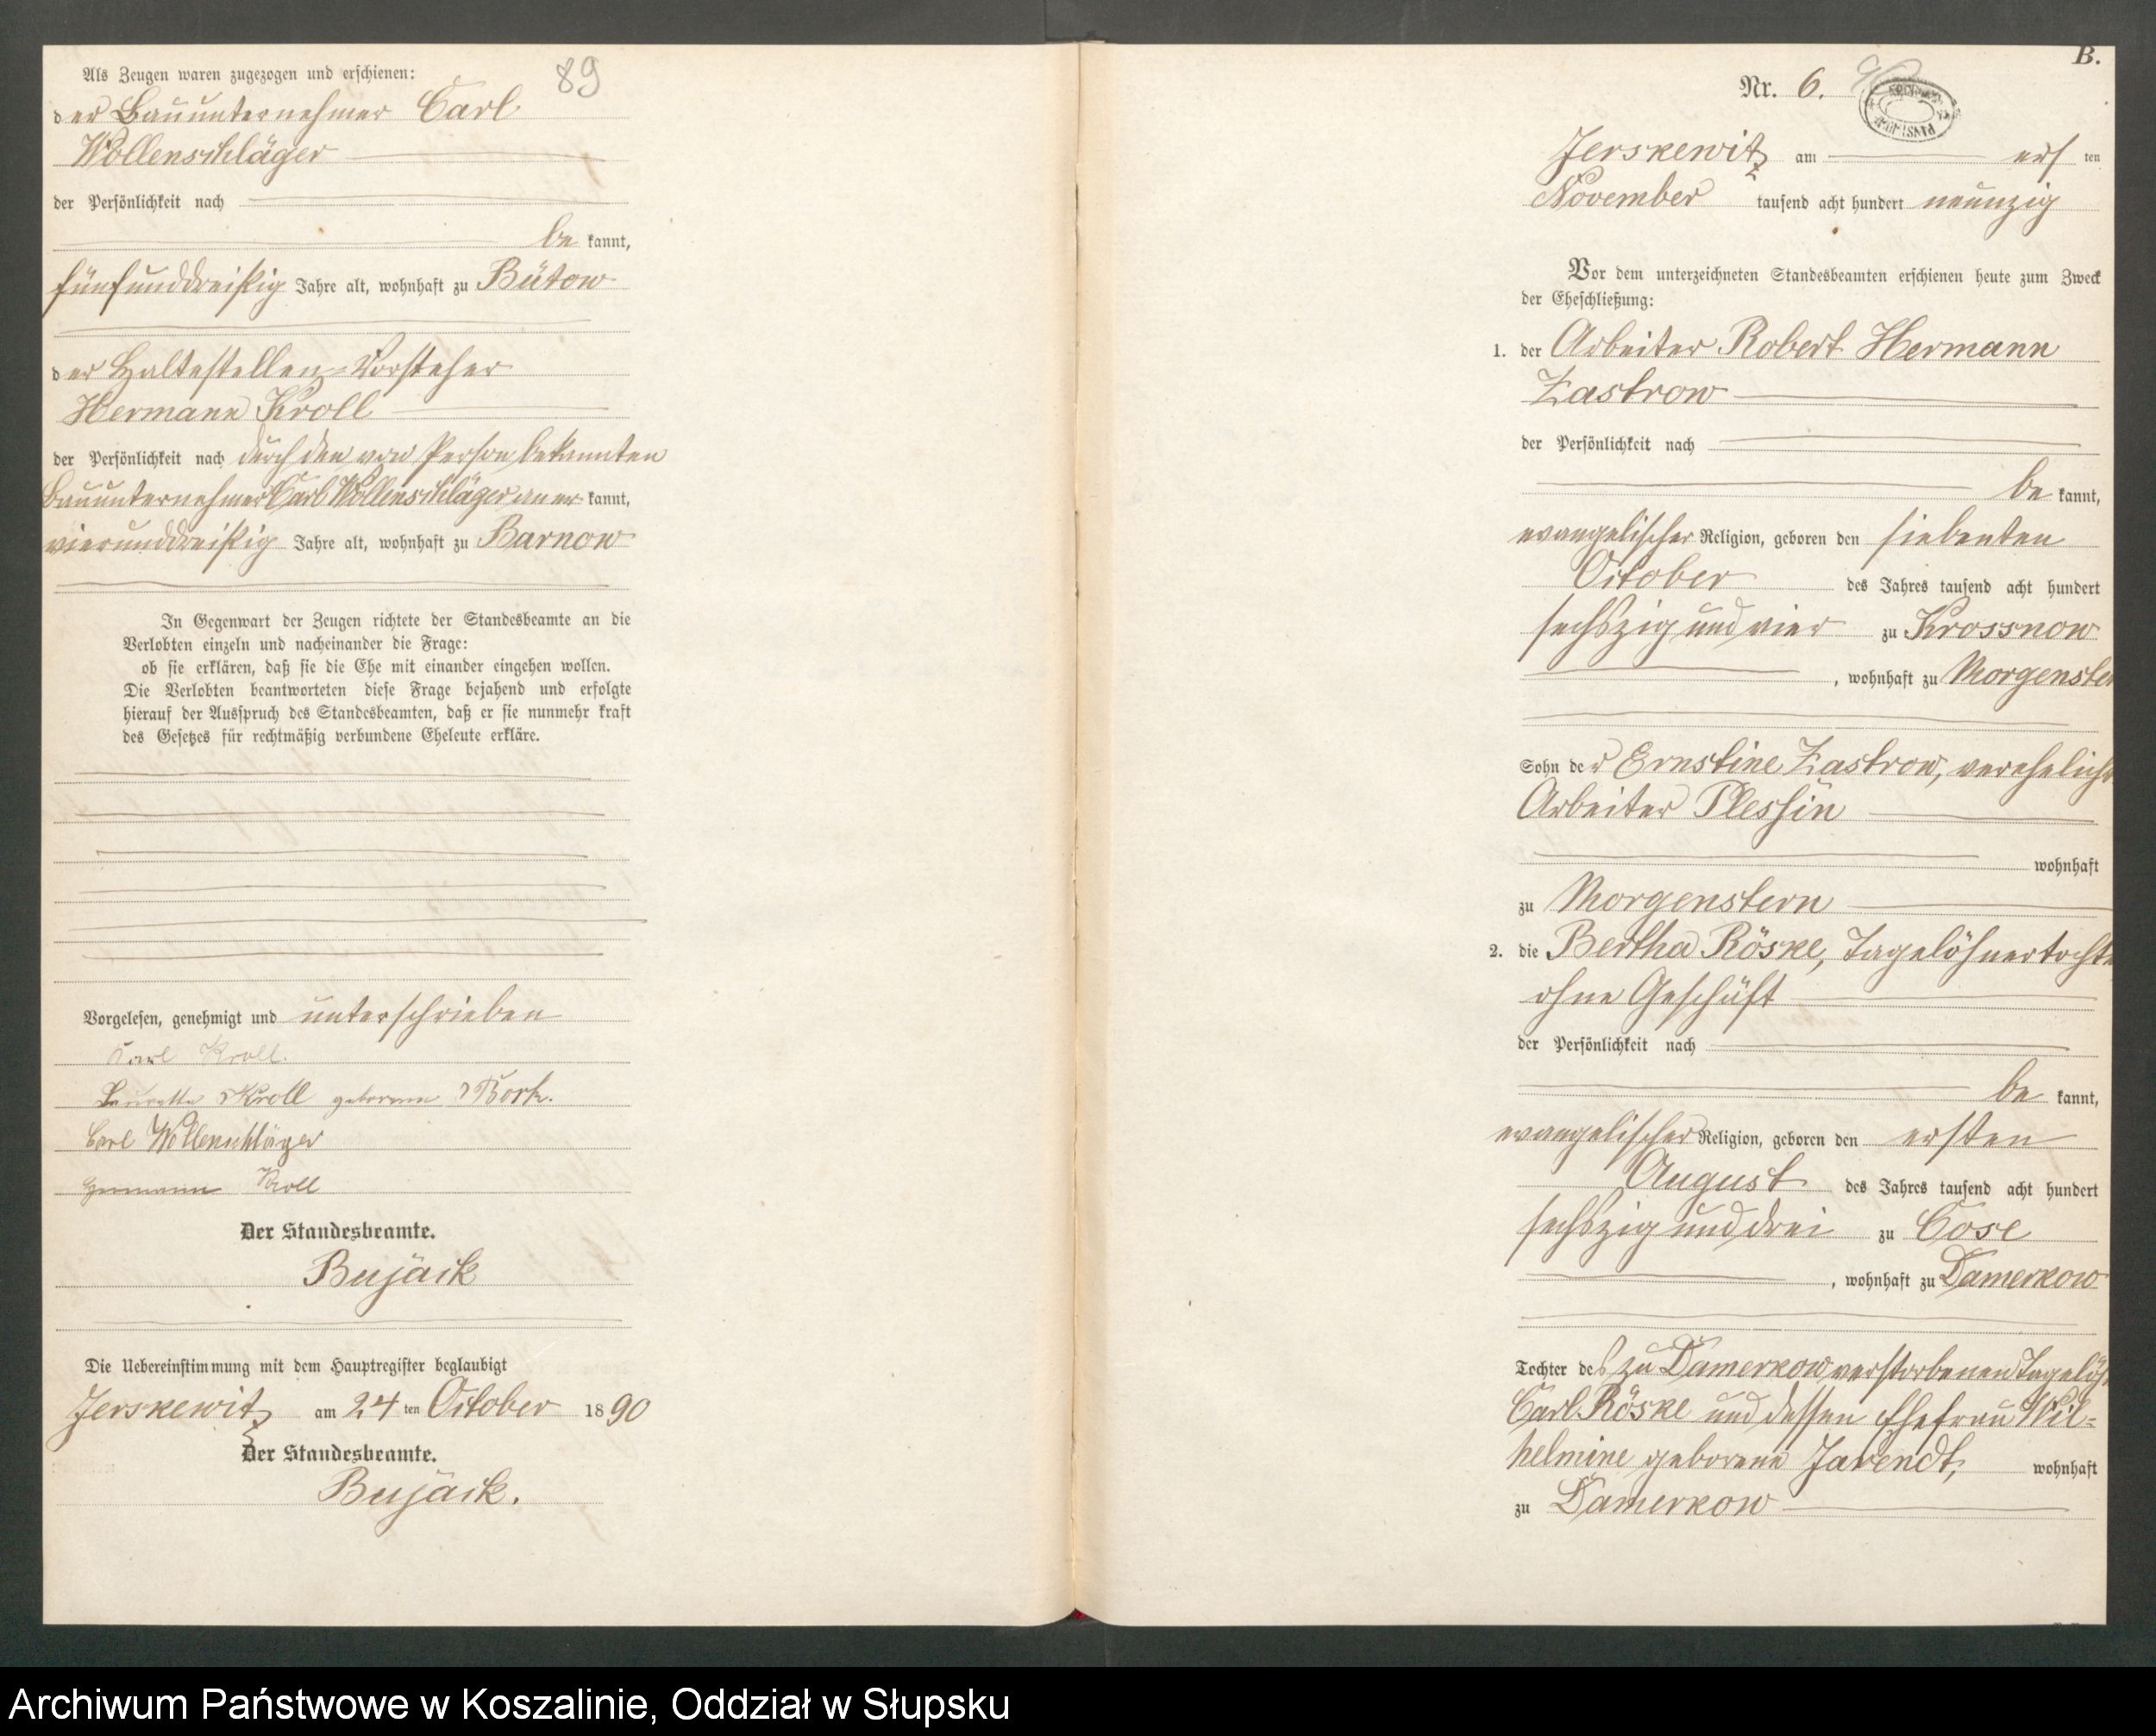 89
Als Zeugen waren zugezogen und erschienen:
der Bauunternehmer Carl
Wollenschläger
der Persönlichkeit nach
be kannt,
fünfunddreißig Jahre alt, wohnhaft zu Bütow
der Haltestellen-Vorsteher
Hermann Kroll
der Persönlichkeit nach durch den von Person bekannten
Bauunternehmer Carl Wollenschläger aner kannt,
vierunddreißig Jahre alt, wohnhaft zu Barnow
In Gegenwart der Zeugen richtete der Standesbeamte an die
Verlobten einzeln und nacheinander die Frage:
ob sie erklären, daß sie die Ehe mit einander eingehen wollen.
Die Verlobten beantworteten diese Frage bejahend und erfolgte
hierauf der Ausspruch des Standesbeamten, daß er sie nunmehr kraft
des Gesetzes für rechtmäßig verbundene Eheleute erkläre.
Vorgelesen, genehmigt und unterschrieben
Carl Kroll.
Kroll geborene Bork.
Carl Wollenschläger
Hermann Kroll
Der Standesbeamte.
Bujack
Die Uebereinstimmung mit dem Hauptregister beglaubigt
Jerskewitz am 24 ten October 1890
Der Standesbeamte.
Bujack.
B.
Nr. 6.
Jerskewitz am ersten
November tausend acht hundert neunzig
Vor dem unterzeichneten Standesbeamten erschienen heute zum Zweck
der Eheschließung:
1. der Arbeiter Robert Hermann
Zastrow
der Persönlichkeit nach
be kannt,
evangelischer Religion, geboren den siebenten
October des Jahres tausend acht hundert
sechszig und vier zu Krossnow
, wohnhaft zu Morgenster
Sohn der Ernstine Zastrow, verehelicht
Arbeiter Plessin
wohnhaft
zu Morgenstern
2. die Bertha Röske, Tagelöhnertochte
ohne Geschäft
der Persönlichkeit nach
be kannt,
evangelischer Religion, geboren den ersten
August des Jahres tausend acht hundert
sechszig und drei zu Cose
, wohnhaft zu Damerkow
Tochter des zu Damerkow verstorbenen Tagelöh
Carl Röske und dessen Ehefrau Wil-
helmine geborene Jarendt, wohnhaft
zu Damerkow
Archiwum Państwowe w Koszalinie, Oddział w Słupsku